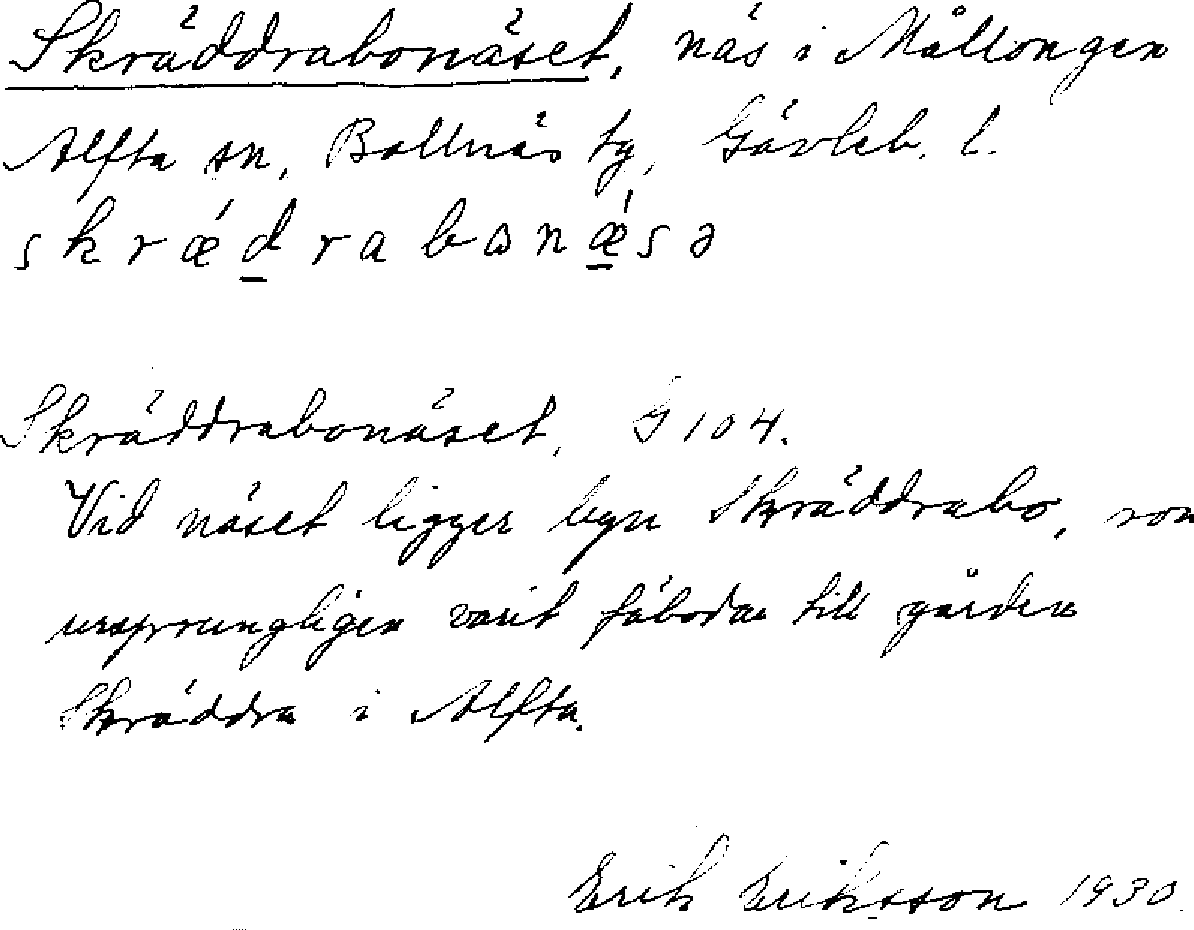 Skräddrabonäset, näs i Mållongen
Alfta sn, Bollnäs tg, Gävleb. l.
skrǽd̲rabωnǽ̲sə
Skräddrabonäset, G 104.
Vid näset ligger byn Skräddrabo, som
ursprungligen varit fäbodar till gården
Skräddra i Alfta.
Erik Eriksson 1930.